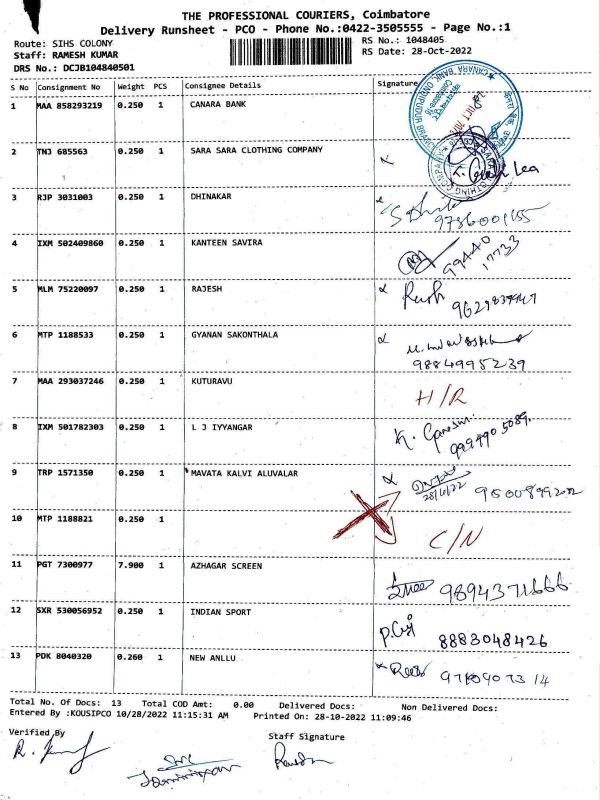 THE PROFESSIONAL COURIERS, Coimbatore
Delivery Runsheet - PCO - Phone No.:0422-3505555 - Page No.:1
Route: SIHS COLONY
RS No.: 1048405
Staff: RAMESH KUMAR
RS Date: 28-Oct-2022
DRS No.: DCJB104840501
S No Consignment No Weight PCS Consignee Details Signature
1 MAA 858293219 0.250 1 CANARA BANK
2 TNJ 685563 0.250 1 SARA SARA CLOTHING COMPANY
3 RJP 3031003 0.250 1 DHINAKAR
4 IXM 502409860 0.250 1 KANTEEN SAVIRA 99440 17733
5 MLM 75220097 0.250 1 RAJESH
6 MTP 1188533 0.250 1 GYANAN SAKONTHALA 9884995239
7 MAA 293037246 0.250 1 KUTURAVU H/R
8 IXM 501782303 0.250 1 L J IYYANGAR K. Ganesan
9 TRP 1571350 0.250 1 MAVATA KALVI ALUVALAR
10 MTP 1188821 0.250 1 C/N
11 PGT 7300977 7.900 1 AZHAGAR SCREEN 9894371666
12 SXR 530056952 0.250 1 INDIAN SPORT 8883048426
13 PDK 8040320 0.260 1 NEW ANLLU
Total No. Of Docs: 13 Total COD Amt: 0.00 Delivered Docs: Non Delivered Docs:
Entered By :KOUSIPCO 10/28/2022 11:15:31 AM Printed On: 28-10-2022 11:09:46
Verified By
Staff Signature